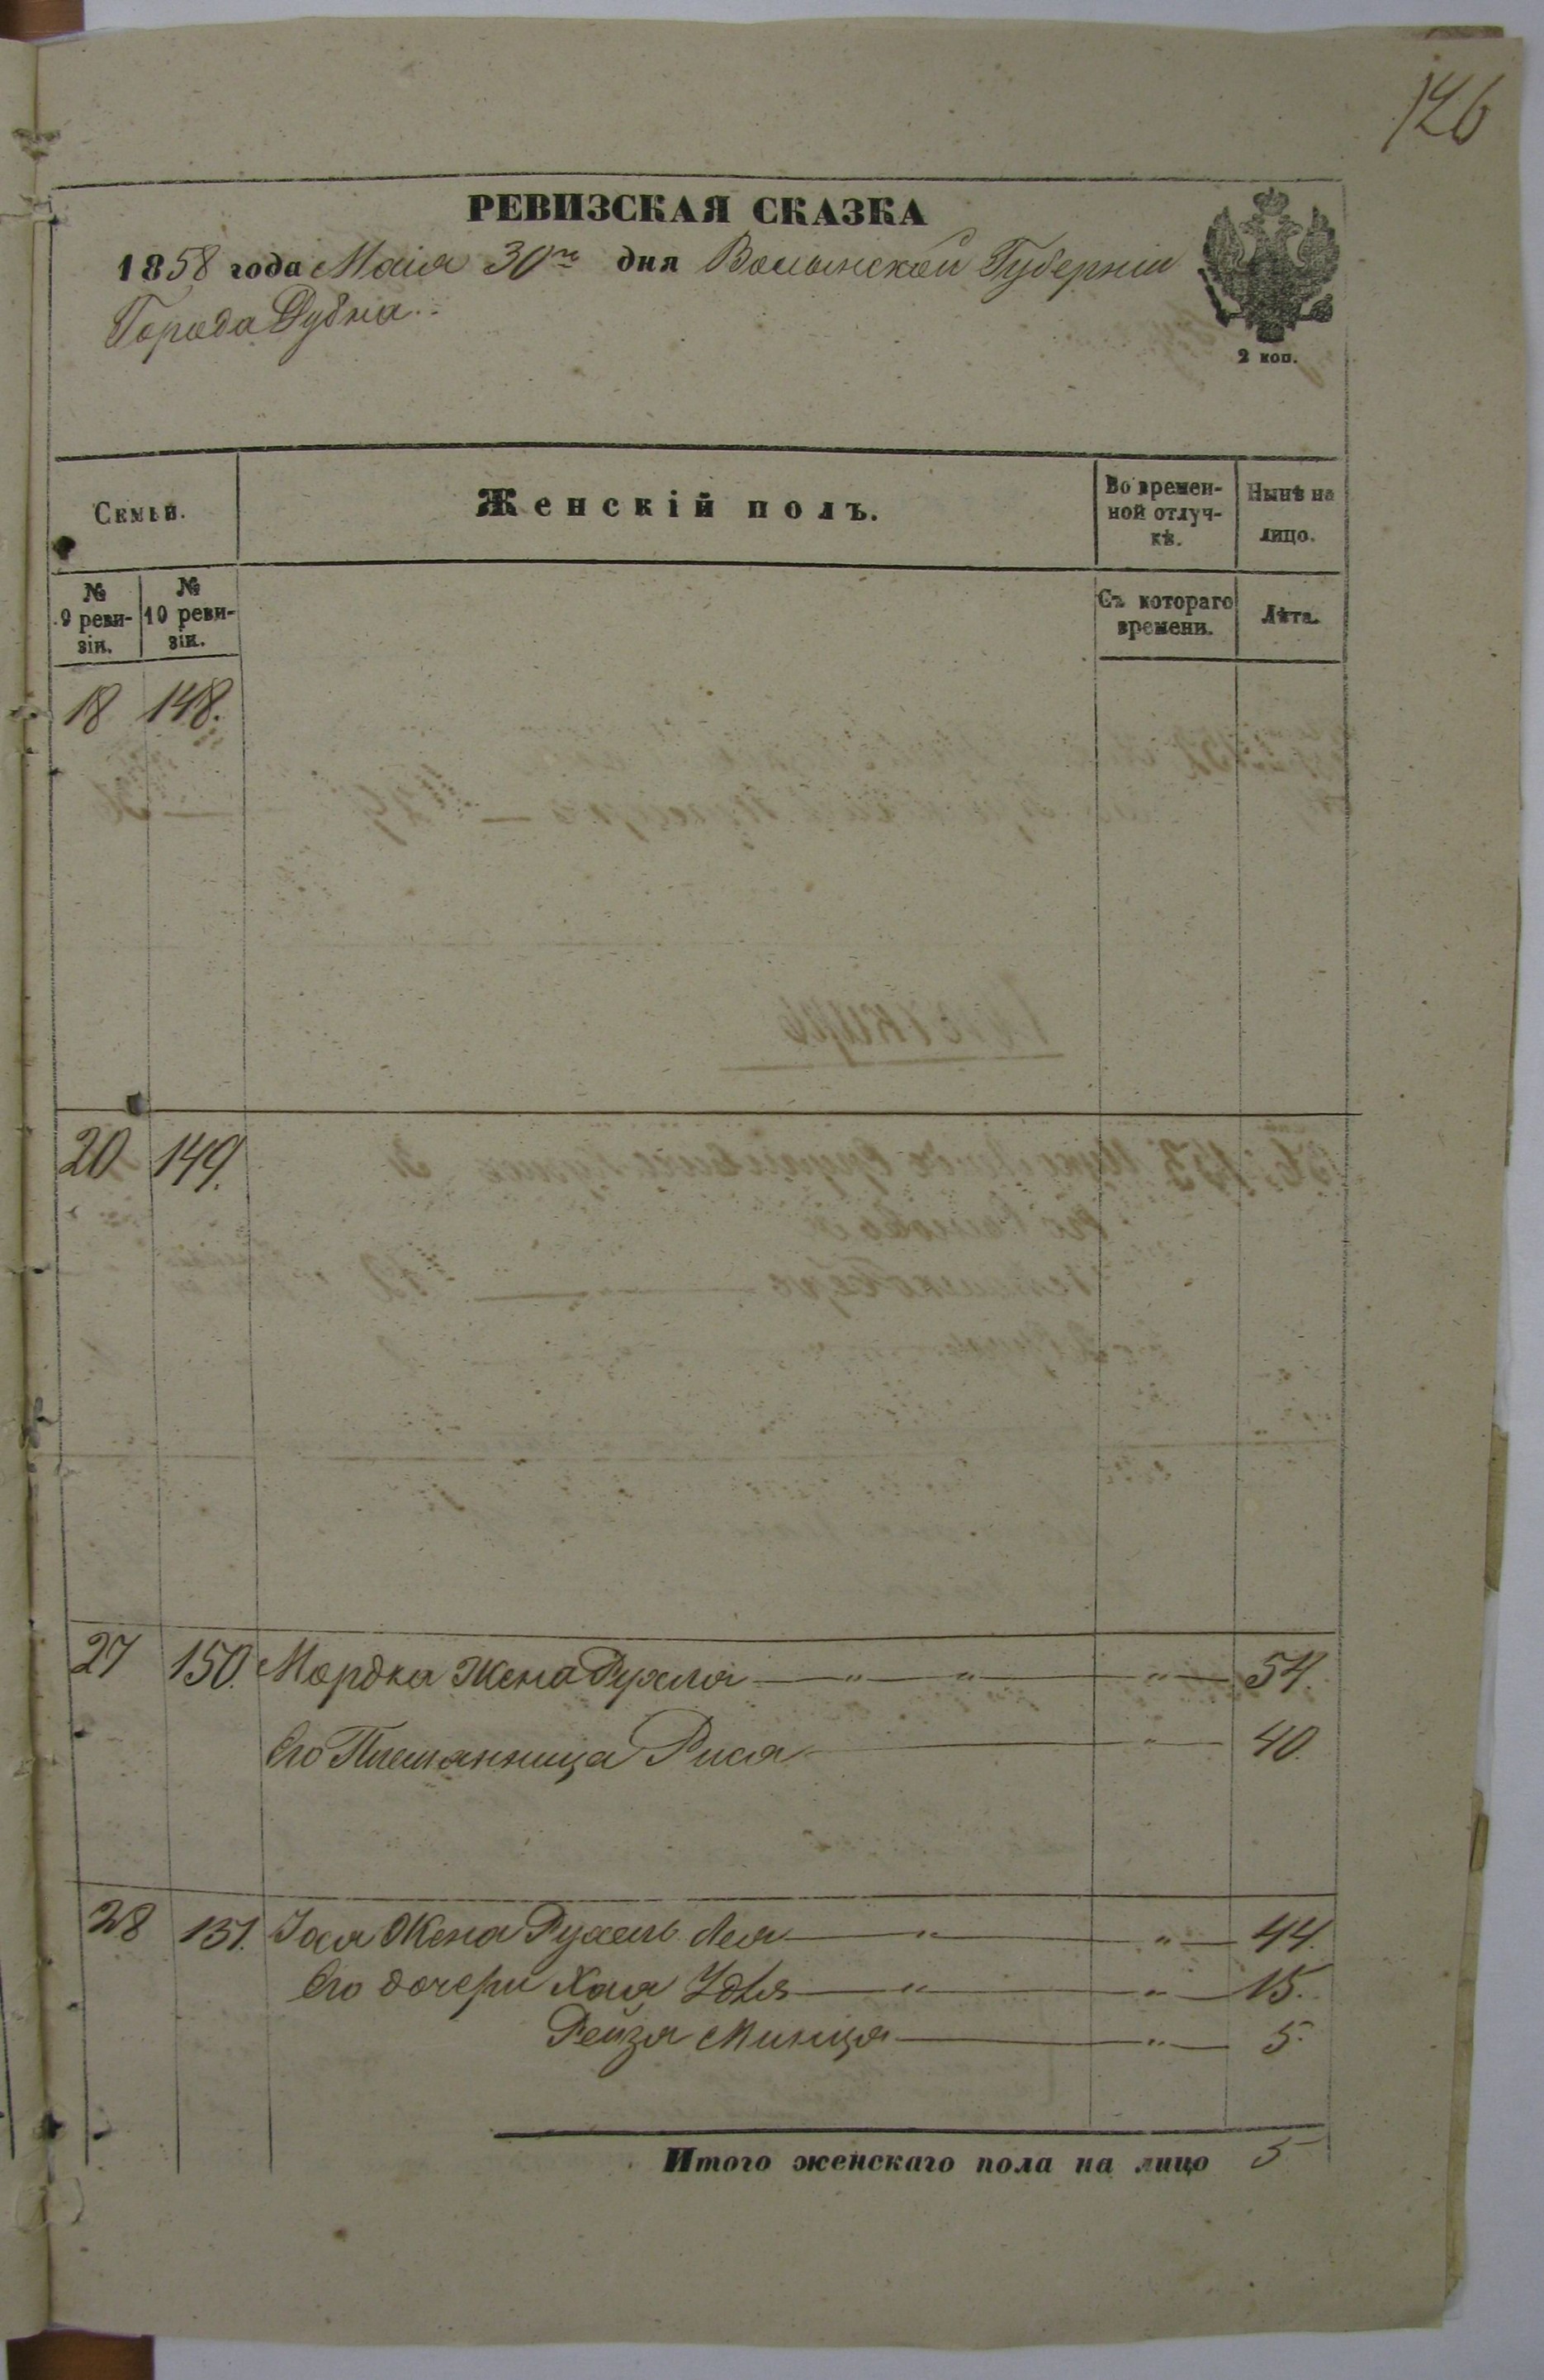 126
РЕВИЗСКАЯ СКАЗКА
1858 года Маія 30го дня Волынской Губерніи
Города Дубна
2 коп.
Семьи.
Женскій полъ.
Во времен-
ной отлуч-
кѣ.
Нынѣ на
лицо.
№
9 реви-
зіи.
№
10 реви-
зіи.
Съ котораго
времени.
Лѣта.
18 148.
20 149.
27 150. Мордка Жена Рухля — " — " — " — 54.
Его Племянница Рися — " — 40.
28 151. Жена Рухель Лея — " — " — 44.
Его дочери Хая Удля — " — " — 15.
Рейза Минця — " — 5.
Итого женскаго пола на лицо 5